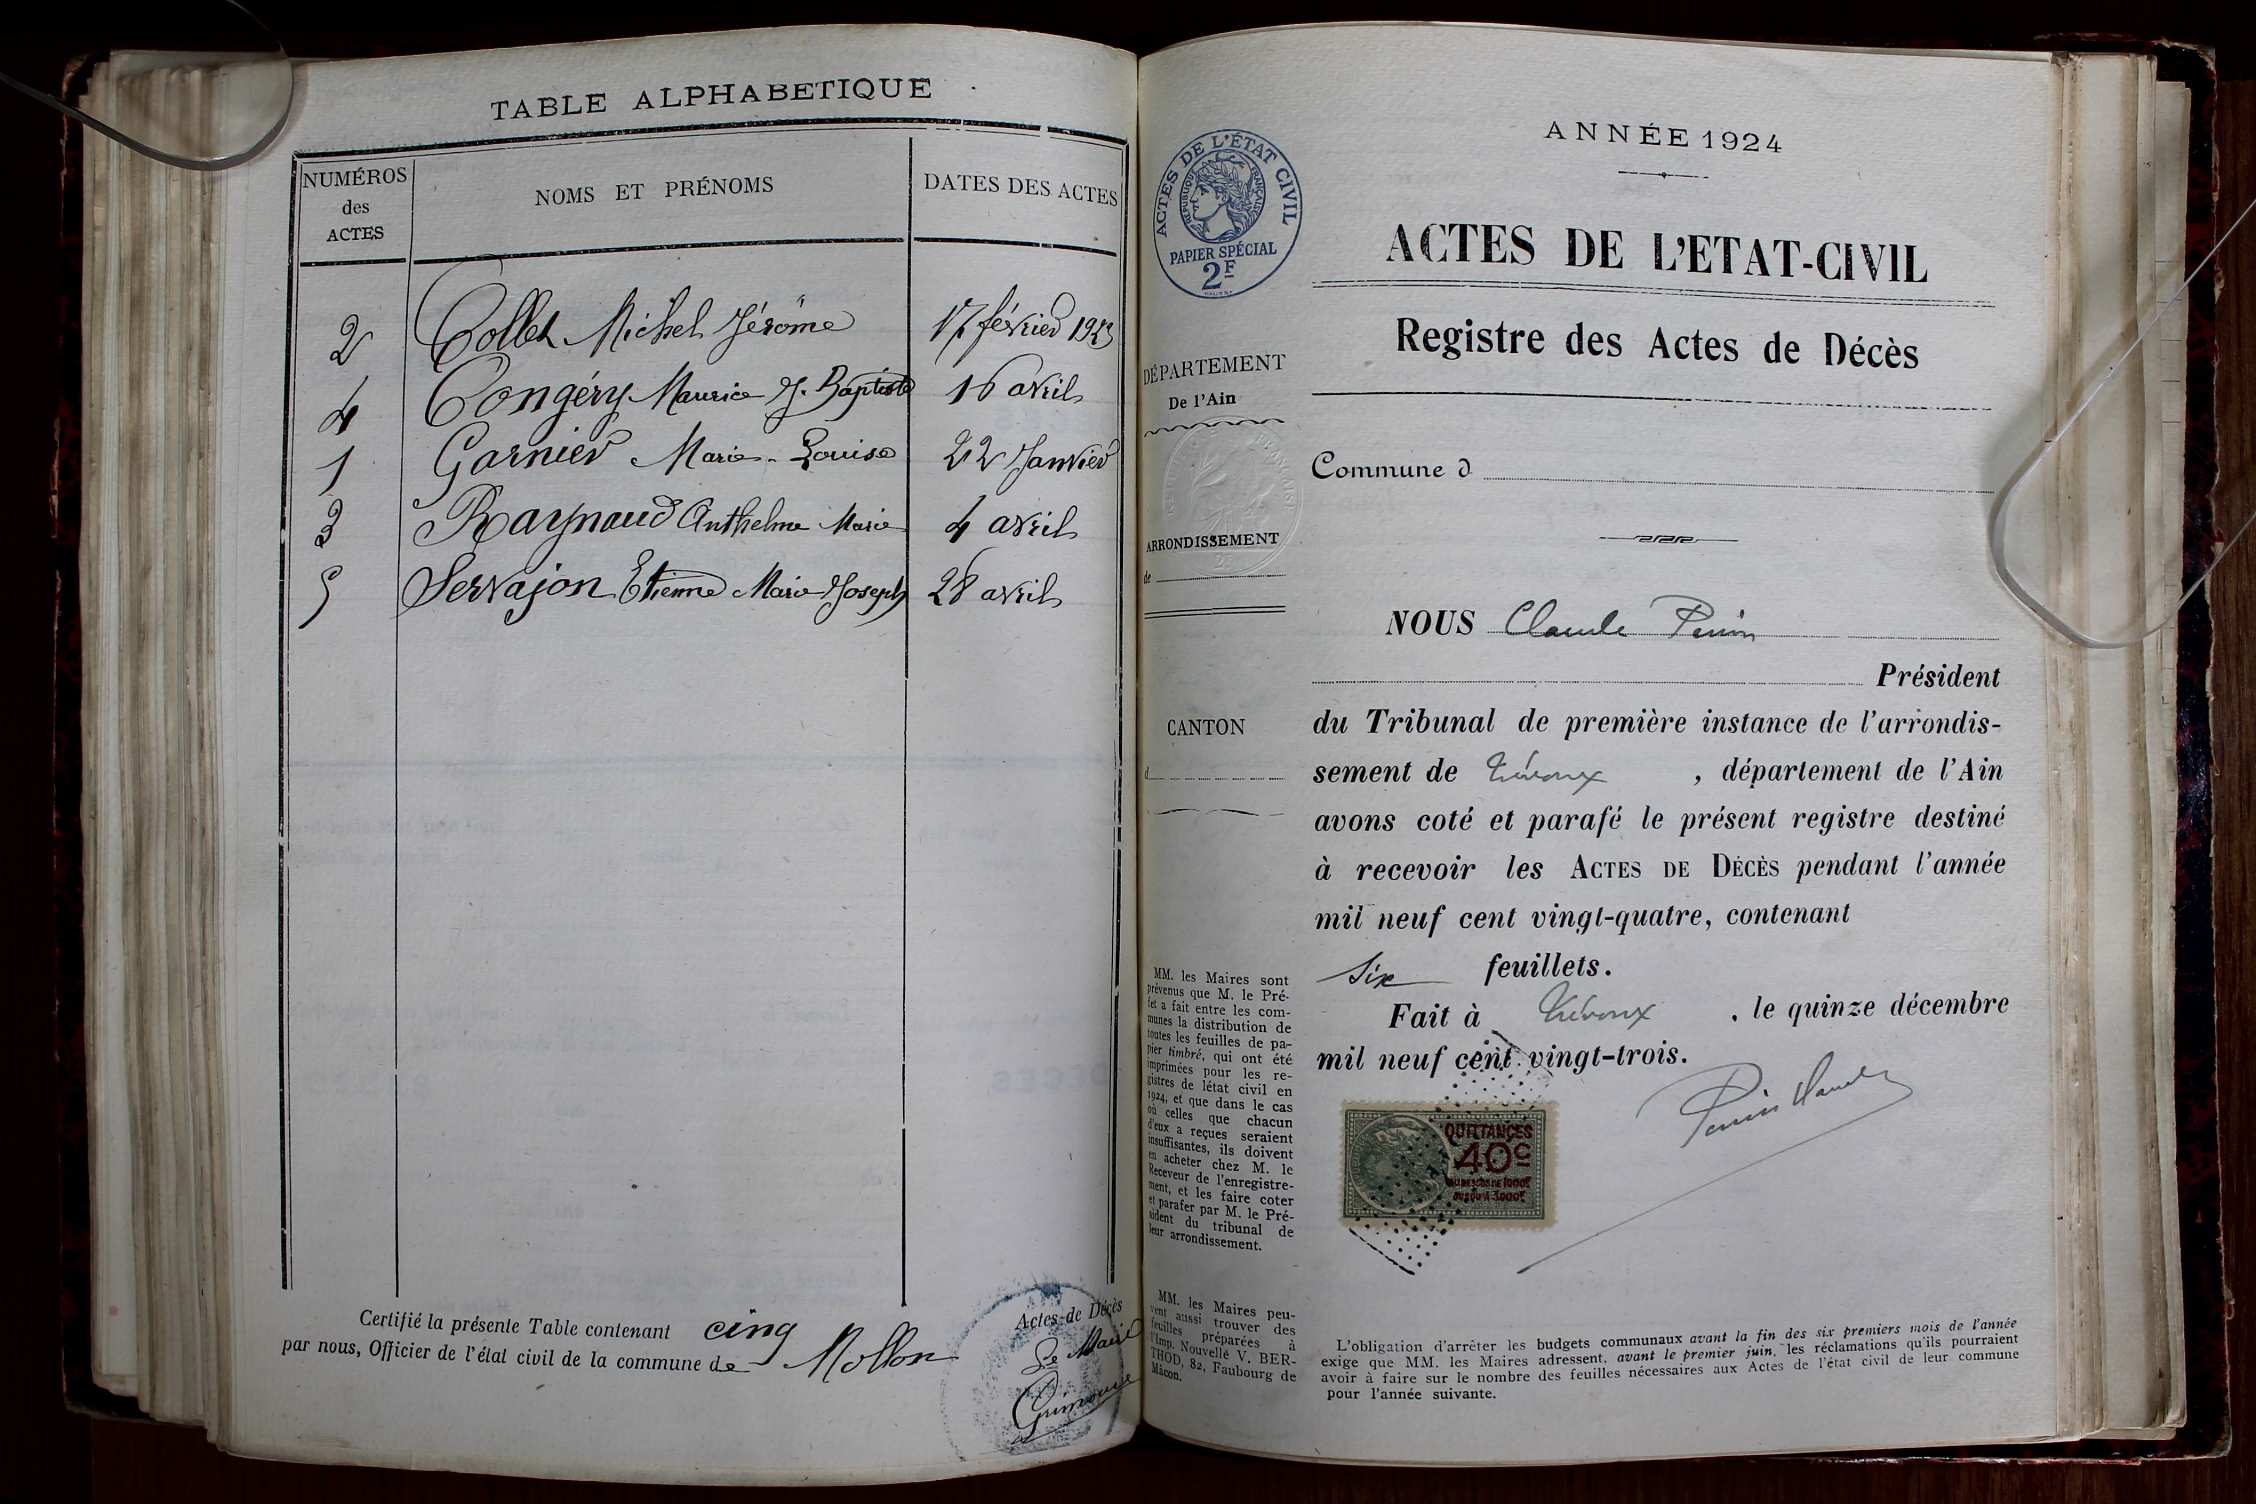 TABLE ALPHABETIQUE
NUMÉROS des ACTES
NOMS ET PRÉNOMS
DATES DES ACTES
2 Collet Michel Jérôme 17 février 1923
4 Congéry Maurice J. Baptiste 16 avril
1 Garnier Marie-Louise 22 Janvier
3 Raynaud Anthelme Marie 4 avril
5 Servajon Etienne Marie Joseph 28 avril
Certifié la présente Table contenant cinq Actes de Décès
par nous, Officier de l'état civil de la commune de Mollon
Le Maire
ACTES DE L'ÉTAT CIVIL
RÉPUBLIQUE FRANÇAISE
PAPIER SPÉCIAL
2F
DÉPARTEMENT
De l'Ain
ARRONDISSEMENT
de
CANTON
d
MM. les Maires sont
prévenus que M. le Pré-
fet a fait entre les com-
munes la distribution de
toutes les feuilles de pa-
pier timbré, qui ont été
imprimées pour les re-
gistres de létat civil en
1924, et que dans le cas
où celles que chacun
d'eux a reçues seraient
insuffisantes, ils doivent
en acheter chez M. le
Receveur de l'enregistre-
ment, et les faire coter
et parafer par M. le Pré-
sident du tribunal de
leur arrondissement.
MM. les Maires peu-
vent aussi trouver des
feuilles préparées à
l'Imp. Nouvelle V. BER-
THOD, 82, Faubourg de
Mâcon.
ANNÉE 1924
ACTES DE L'ETAT-CIVIL
Registre des Actes de Décès
Commune d
NOUS Claude Perrin
Président
du Tribunal de première instance de l'arrondis-
sement de Trévoux, département de l'Ain
avons coté et parafé le présent registre destiné
à recevoir les ACTES DE DÉCÈS pendant l'année
mil neuf cent vingt-quatre, contenant
six feuillets.
Fait à Trévoux, le quinze décembre
mil neuf cent vingt-trois.
Perrin Claude
QUITTANCES
40c
AU DESSUS DE 1000F
JUSQU'A 3000F
L'obligation d'arrêter les budgets communaux avant la fin des six premiers mois de l'année
exige que MM. les Maires adressent, avant le premier juin, les réclamations qu'ils pourraient
avoir à faire sur le nombre des feuilles nécessaires aux Actes de l'état civil de leur commune
pour l'année suivante.